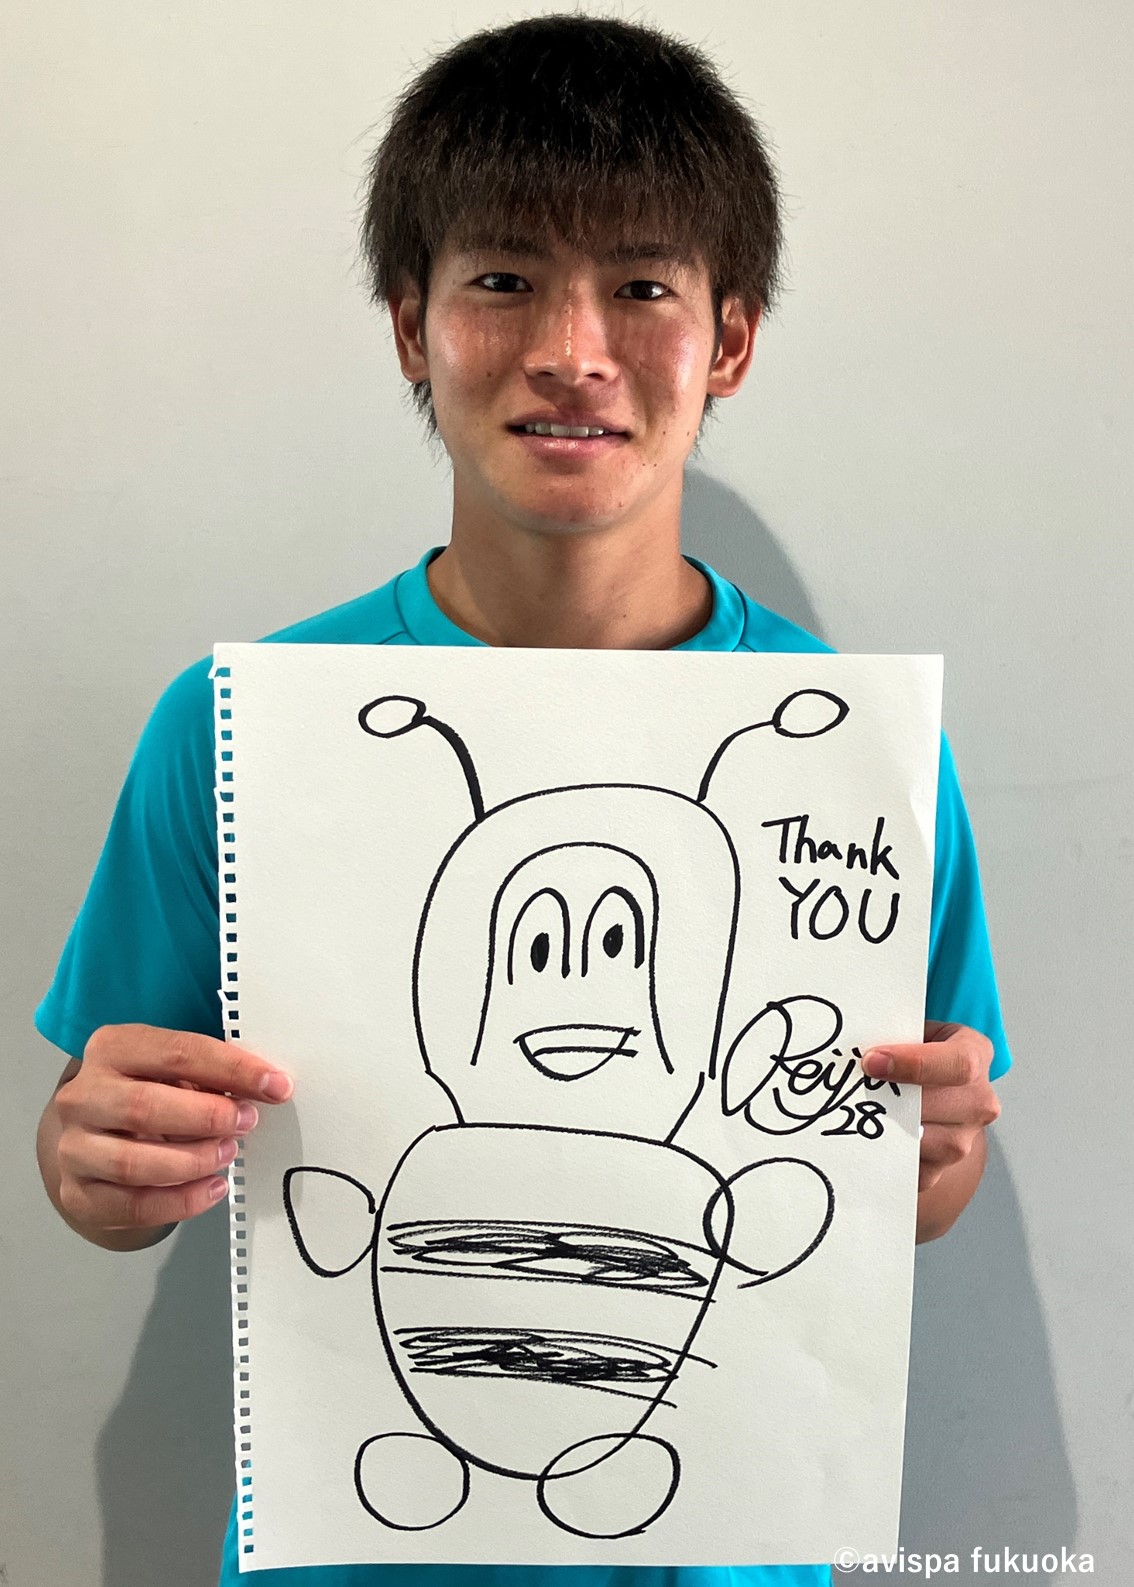 Thank
YOU
Reiju
28
©avispa fukuoka